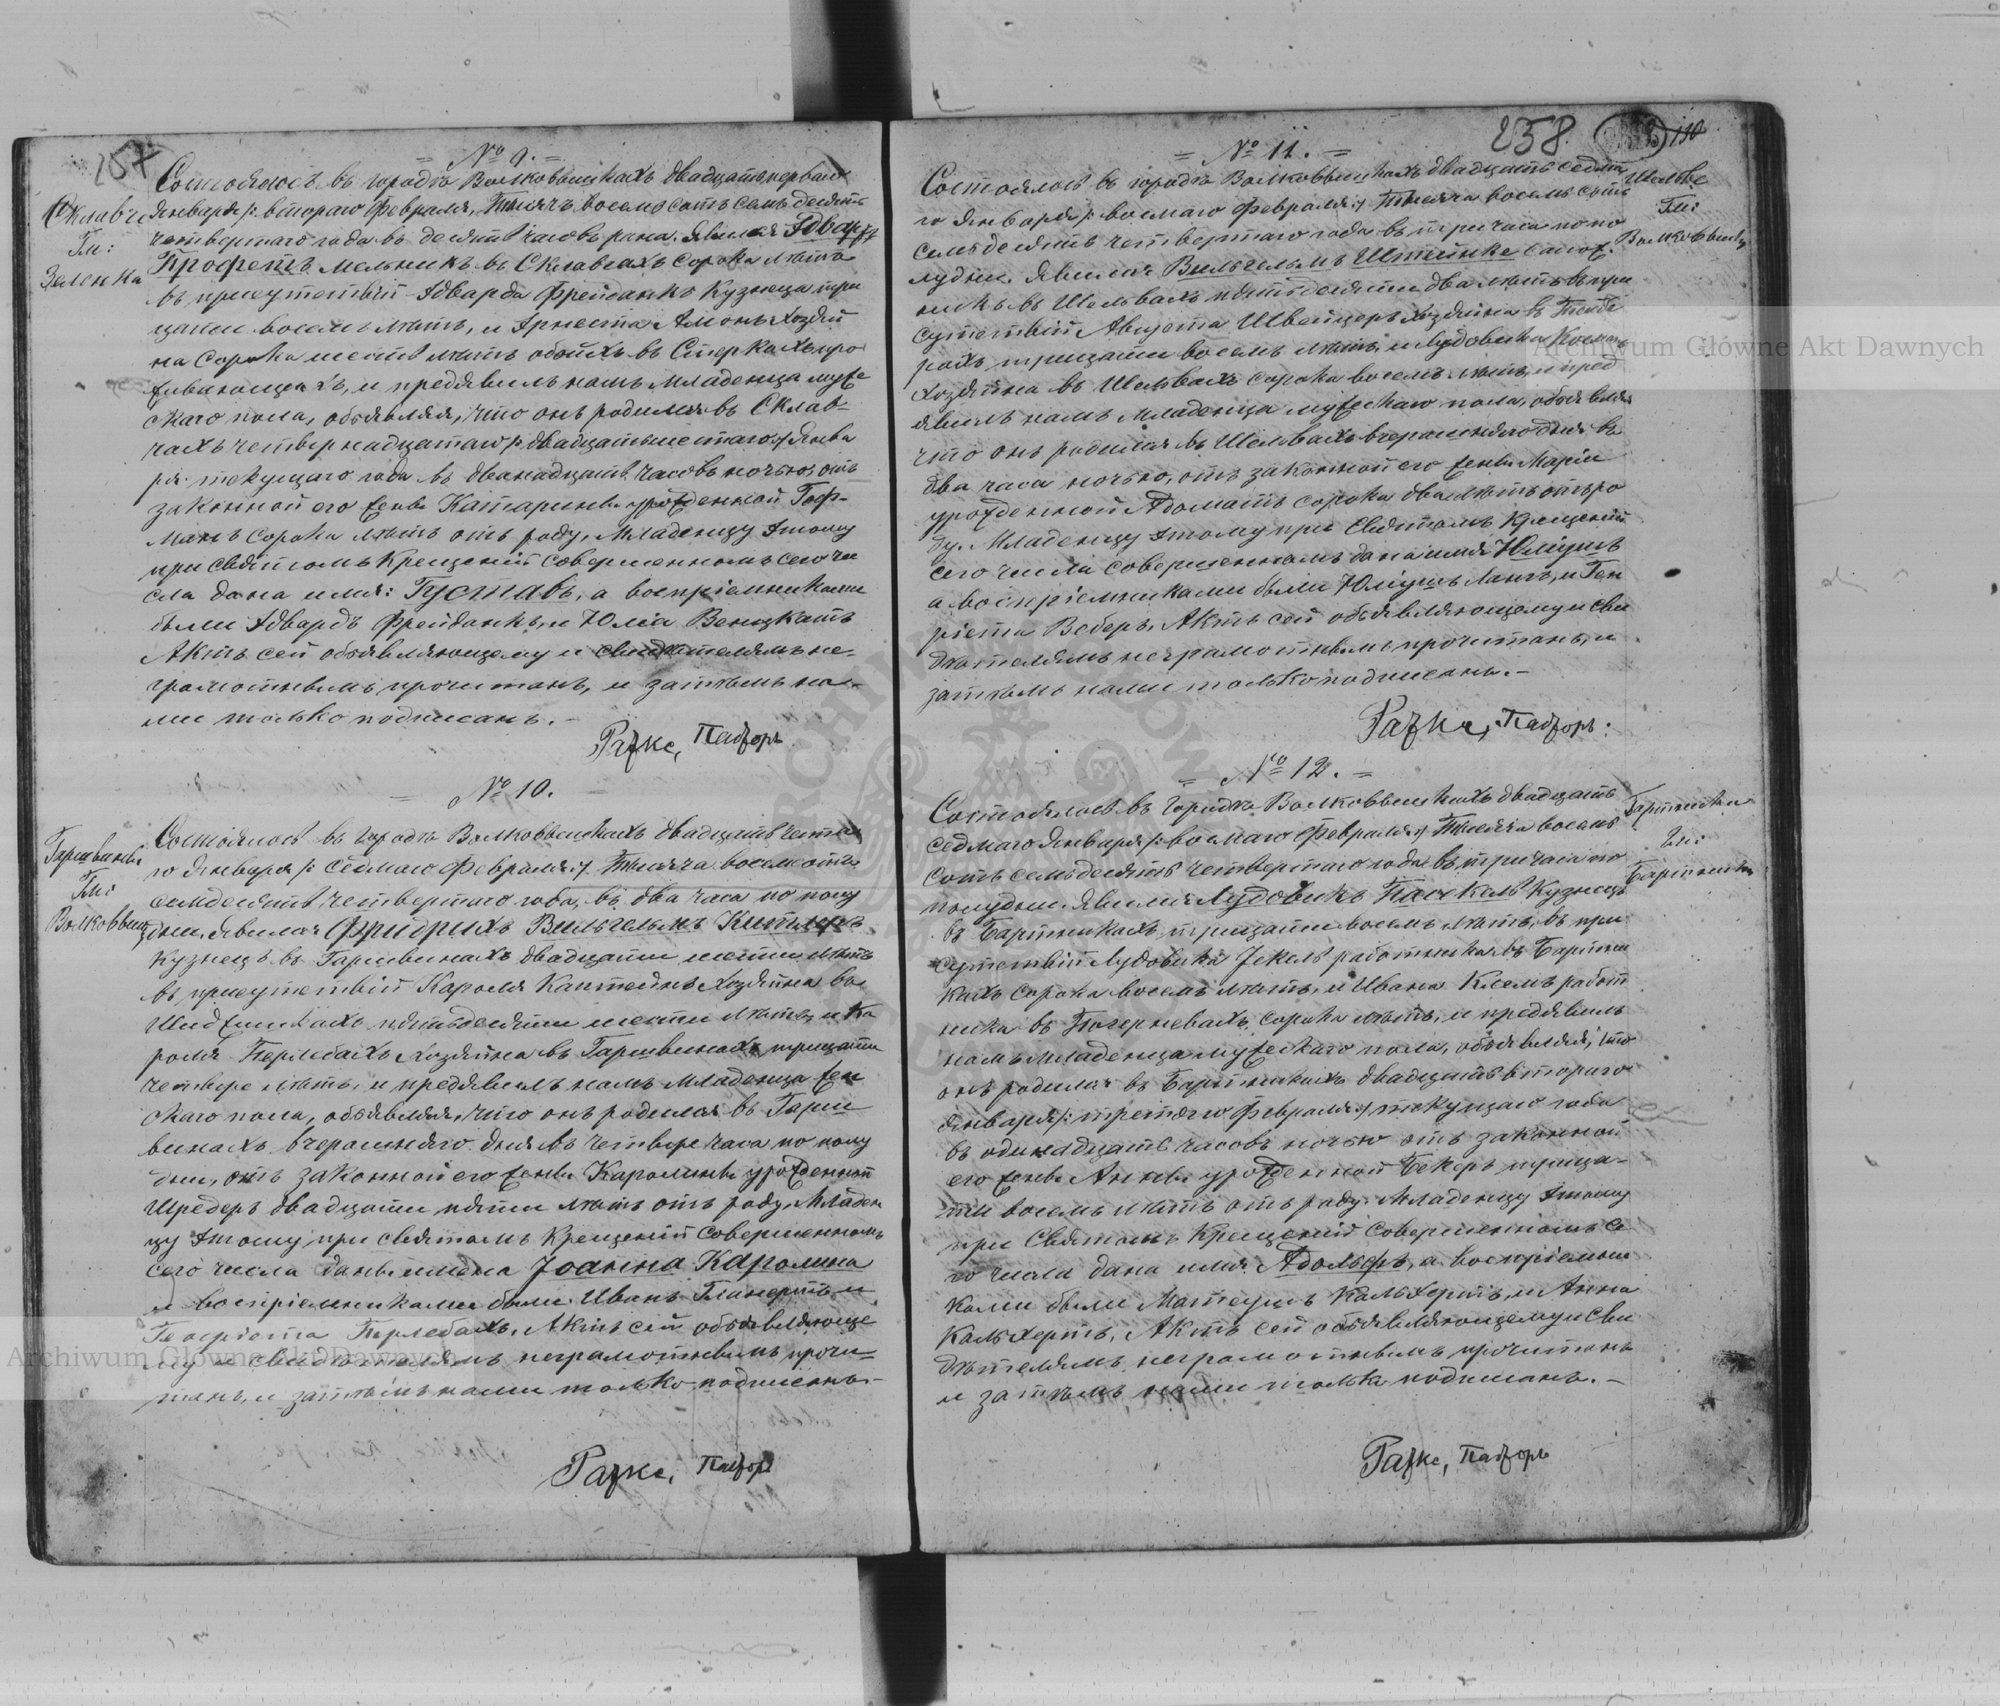 257
= № 9. =
Состоялось въ городѣ Волковышкахъ двадцать перваго
Склавче
Гм:
Зеленка
Января /: втораго Февраля, Тысяча восемьсотъ семьдесятъ
четвертаго года въ десять часовъ рана. Явился Эдвардъ
Профетъ мельникъ въ Склавчахъ сорока лѣтъ
въ присутствіи Эдварда Фрейданкъ Кузнеца три
цати восемь лѣтъ, и Эрнеста Амонъ Хозяи
на сорока шести лѣтъ обоихъ въ Стеркахъ про
живающихъ, и предявилъ намъ младенца муже
скаго пола, объявляя, что онъ родился въ Склав-
чахъ четвернадцатаго /: двадцать шестаго :/ Янва
ря текущаго года въ двѣнадцать часовъ ночью, отъ
законной его жены Катарины урожденной Гоф-
манъ сорока лѣтъ отъ роду, Младенцу этому
при святомъ Крещеніи совершенномъ сего чи
сла дана имя: Густавъ, а воспріемниками
были Эдвардъ Фрейданкъ, и Юлія Веницкатъ
Актъ сей объявляющему и свидѣтелямъ не-
грамотнымъ прочитанъ, и затѣмъ на-
ми только подписанъ. -
Разке, Пасторъ
= № 10. =
Состоялось въ городѣ Волковышкахъ двадцать шеста
Гаршвины
Гм:
Волковышки
го Января /: седмаго Февраля :/ Тысяча восемсотъ
семдесятъ четвертаго года, въ два часа по полу
дни. Явился Фридрихъ Вильгельмъ
Кузнецъ въ Гаршвинахъ двадцати шести лѣтъ
въ присутствіи Кароля Каптейнъ Хозяина въ
пятьдесяти шести лѣтъ, и Ка
роля Перлебахъ Хозяина въ Гаршвинахъ трицати
четыре лѣтъ, и предявилъ намъ младенца жен
скаго пола, объявляя, что онъ родился въ Гарш
винахъ вчерашняго дня въ четыре часа по полу
дни, отъ законной его жены Каролины урожденной
Шредеръ двадцати пяти лѣтъ отъ роду, Младен
цу этому при святомъ Крещеніи совершенномъ
сего числа даны имена Іоанна Каролина
а воспріемниками были Иванъ и
Генріета Перлебахъ. Актъ сей объявляюще
му и свидѣтелямъ неграмотнымъ прочи-
танъ, и затѣмъ нами только подписанъ. -
Разке, Пасторъ
258
110
= № 11. =
Состоялось въ городѣ Волковышкахъ двадцать седма
Шельве
Гм:
Волковышки
го Января /: восмаго Февраля :/ Тысяча восемьсотъ
семьдесятъ четвертаго года въ три часа по по
лудни. Явился Вильгельмъ Штейнке сапож
никъ въ Шельвахъ пятьдесяти два лѣтъ въ при
сутствіи Августа Швейцеръ Хозяина въ
рахъ трицати восемь лѣтъ, и Лудовика
Хозяина въ Шельвахъ сорока восемь лѣтъ, и пред
явилъ намъ младенца мужескаго пола, объявляя
что онъ родился въ Шельвахъ вчерашняго дня въ
два часа ночью, отъ законной его жены Маріи
урожденной Адоматъ сорока два лѣтъ отъ ро
ду. Младенцу этому при святомъ Крещеніи
сего числа совершенномъ дана имя Юліусъ
а воспріемниками были Юліусъ Лангъ, и Ген
ріета Веберъ, Актъ сей объявляющему и сви
дѣтелямъ неграмотнымъ прочитанъ, и
затѣмъ нами только подписанъ. -
Разке, Пасторъ:
= № 12. =
Состоялось въ городѣ Волковышкахъ двадцать
Бартники
Гм:
Бартники
седмаго Января /: восмаго Февраля :/ Тысяча восемь
сотъ семьдесятъ четвертаго года въ три часа по
полудни. Явился Лудовикъ Паскаль Кузнецъ
въ Бартникахъ, трицати восемь лѣтъ, въ при
сутствіи Лудовика Іекель работника въ Бартни
кахъ сорока восемь лѣтъ, и Ивана Клемъ работ
ника въ Погерневахъ, сорока лѣтъ, и предявилъ
намъ младенца мужескаго пола, объявляя, что
онъ родился въ Бартникахъ двадцать втораго
Января /: третяго Февраля :/ текущаго года
въ одинадцать часовъ ночью отъ законной
его жены Анны урожденной Бекеръ трица-
ти восемь лѣтъ отъ роду. Младенцу этому
при Святомъ Крещеніи совершенномъ се
го числа дана имя: Адольфъ, а воспріемни
ками были Матеушъ Кальхертъ, и Анна
Кальхертъ, Актъ сей объявляющему и сви
дѣтелямъ неграмотнымъ прочитанъ
и затѣмъ нами только подписанъ. -
Разке, Пасторъ
Archiwum Główne Akt Dawnych
Archiwum Główne Akt Dawnych